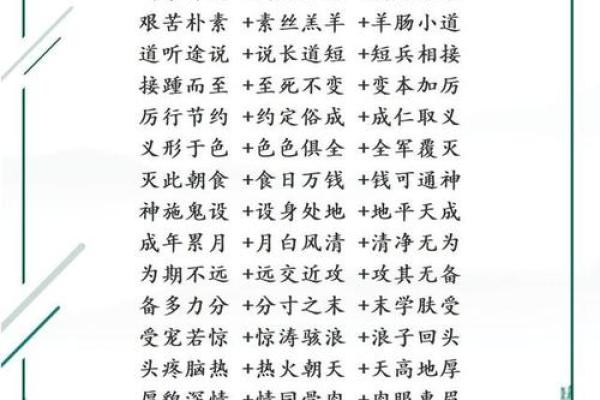 艰苦朴素 +素丝羔羊 +羊肠小道
道听途说 +说长道短 +短兵相接
接踵而至 +至死不变 +变本加厉
厉行节约 +约定俗成 +成仁取义
义形于色 +色色俱全 +全军覆灭
灭此朝食 +食日万钱 +钱可通神
神施鬼设 +设身处地 +地平天成
成年累月 +月白风清 +清净无为
为期不远 +远交近攻 +攻其无备
备多力分 +分寸之末 +末学肤受
受宠若惊 +惊涛骇浪 +浪子回头
头疼脑热 +热火朝天 +天高地厚
厚貌深情 +情同骨肉 +肉眼惠眉